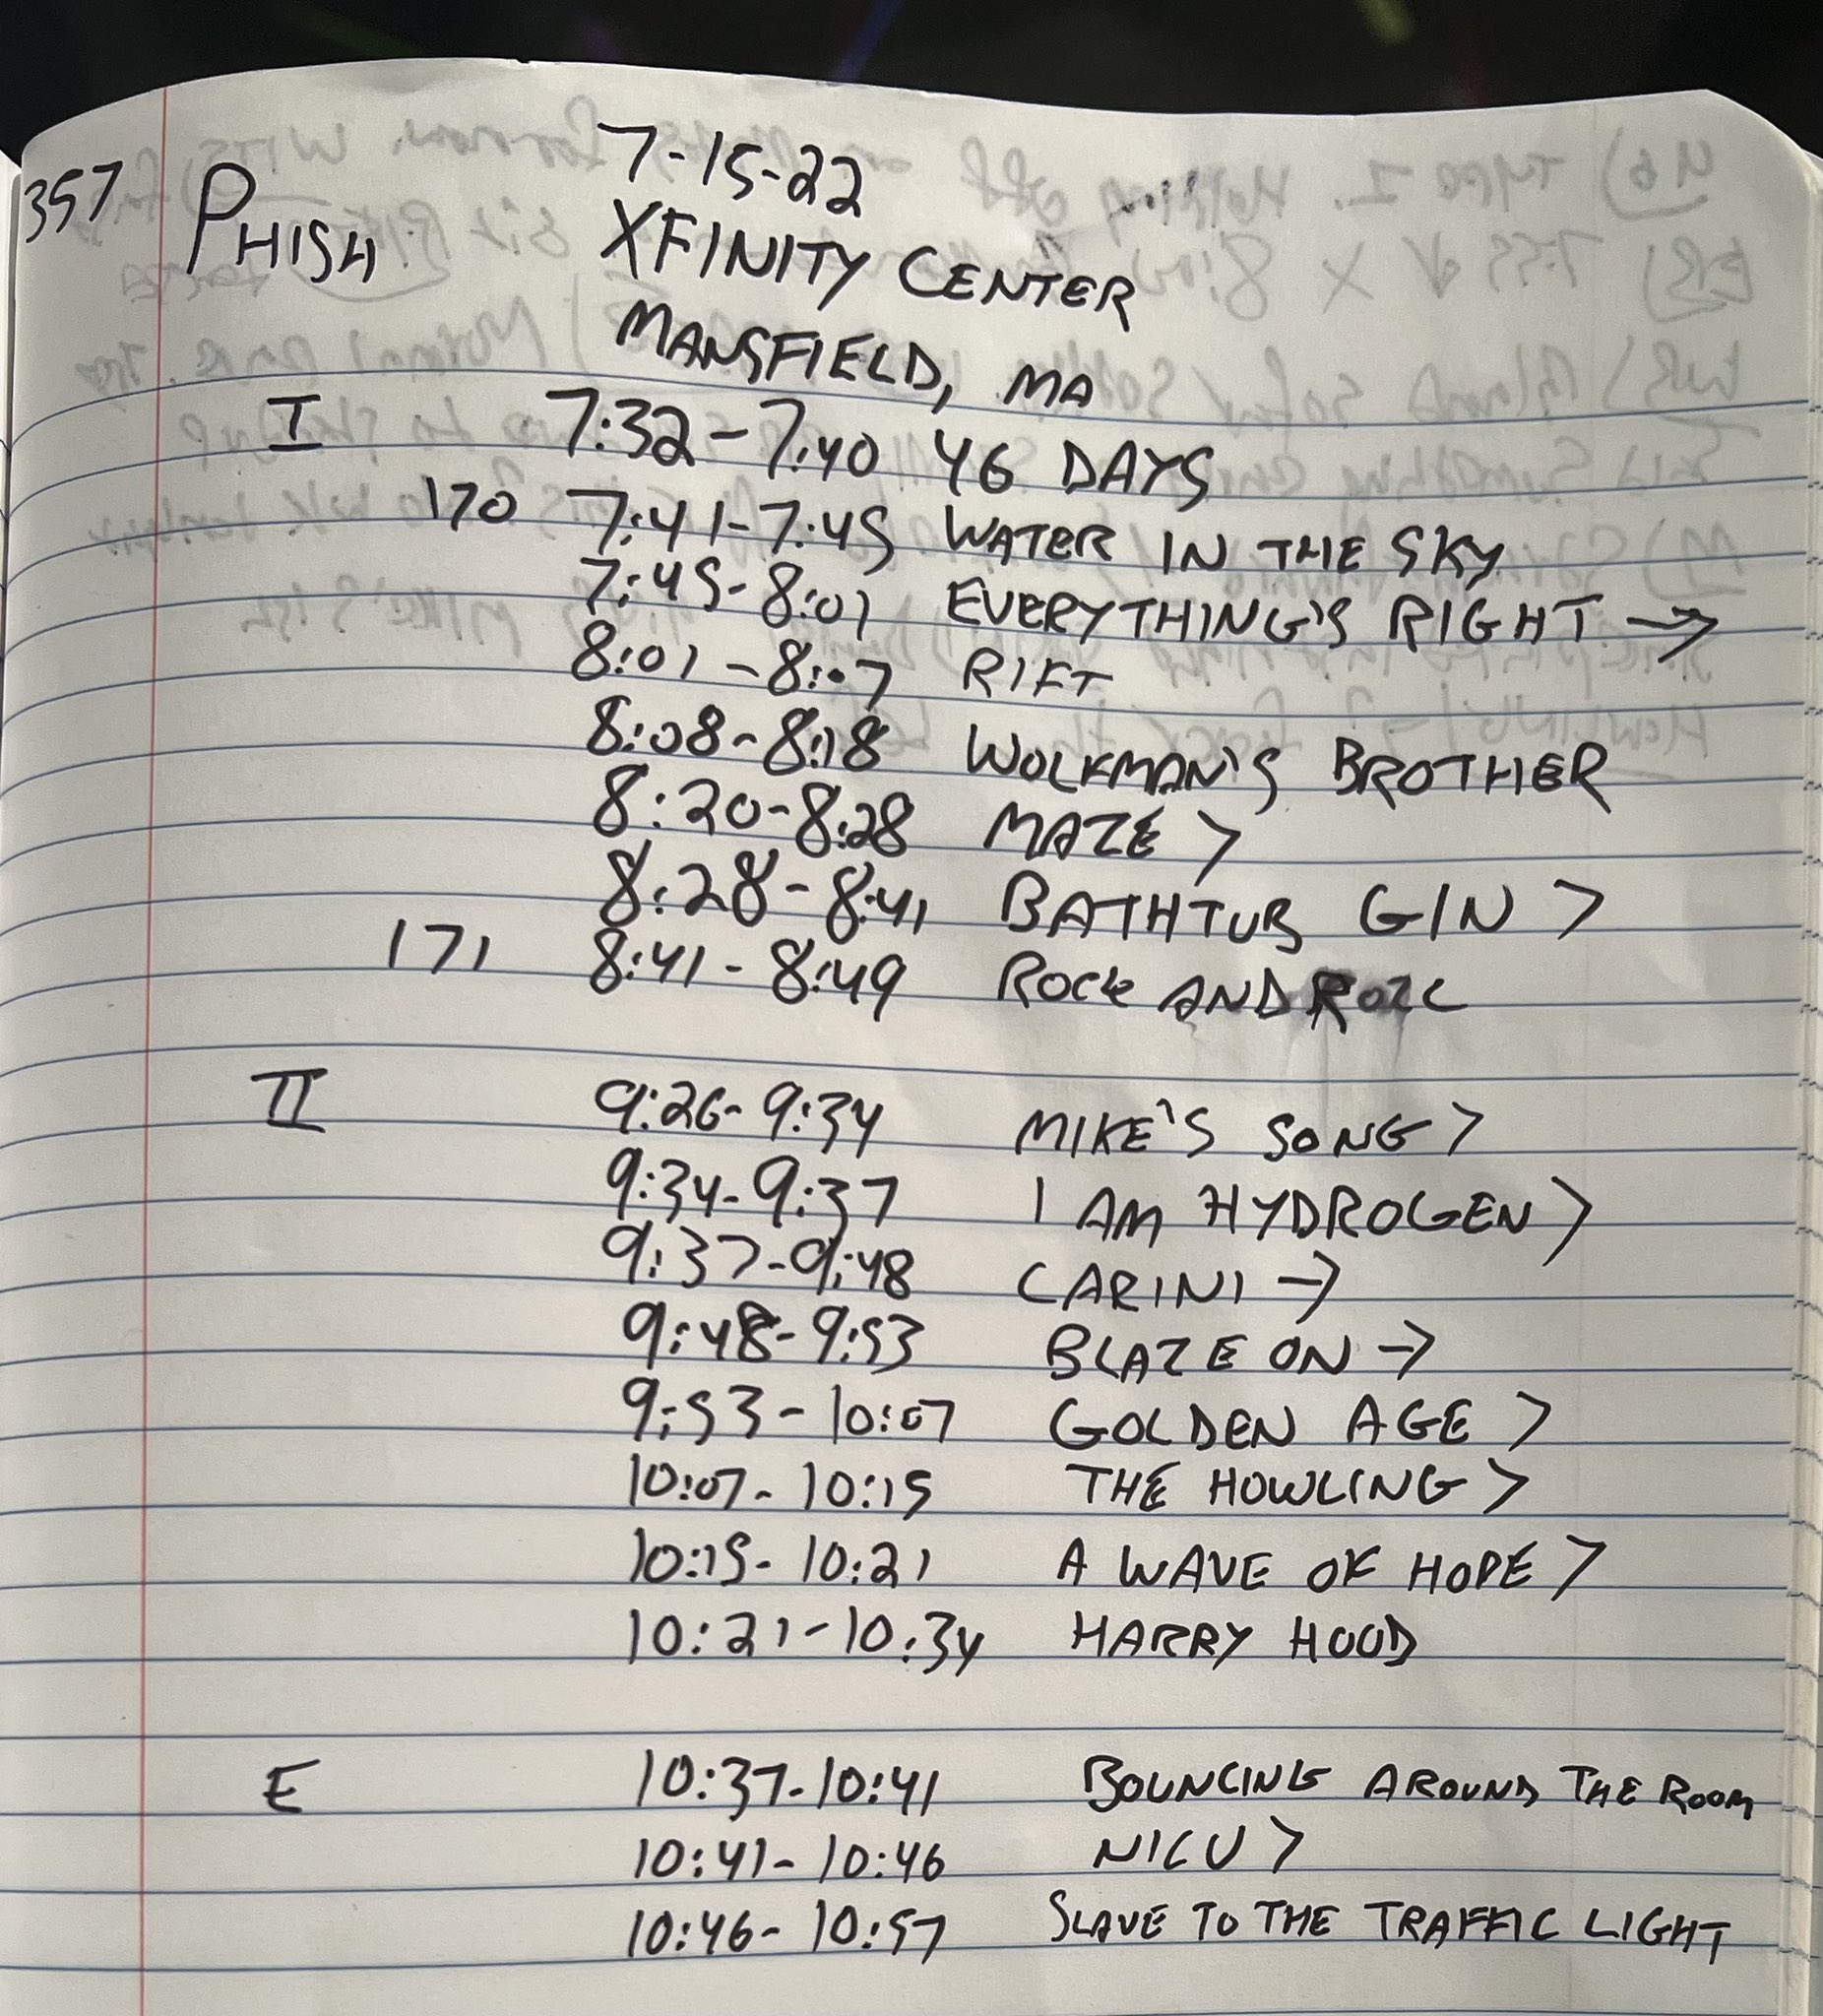 7-15-22
357 PHISH XFINITY CENTER
MANSFIELD, MA
I 7:32-7:40 46 DAYS
170 7:41-7:45 WATER IN THE SKY
7:45-8:01 EVERYTHING'S RIGHT →
8:01-8:07 RIFT
8:08-8:18 WOLKMAN'S BROTHER
8:20-8:28 MAZE >
8:28-8:41 BATHTUB GIN >
171 8:41-8:49 ROCK AND ROLL
II 9:26-9:34 MIKE'S SONG >
9:34-9:37 I AM HYDROGEN >
9:37-9:48 CARINI →
9:48-9:53 BLAZE ON →
9:53-10:07 GOLDEN AGE >
10:07-10:15 THE HOWLING >
10:15-10:21 A WAVE OF HOPE >
10:21-10:34 HARRY HOOD
E 10:37-10:41 BOUNCING AROUND THE ROOM
10:41-10:46 NICU >
10:46-10:57 SLAVE TO THE TRAFFIC LIGHT